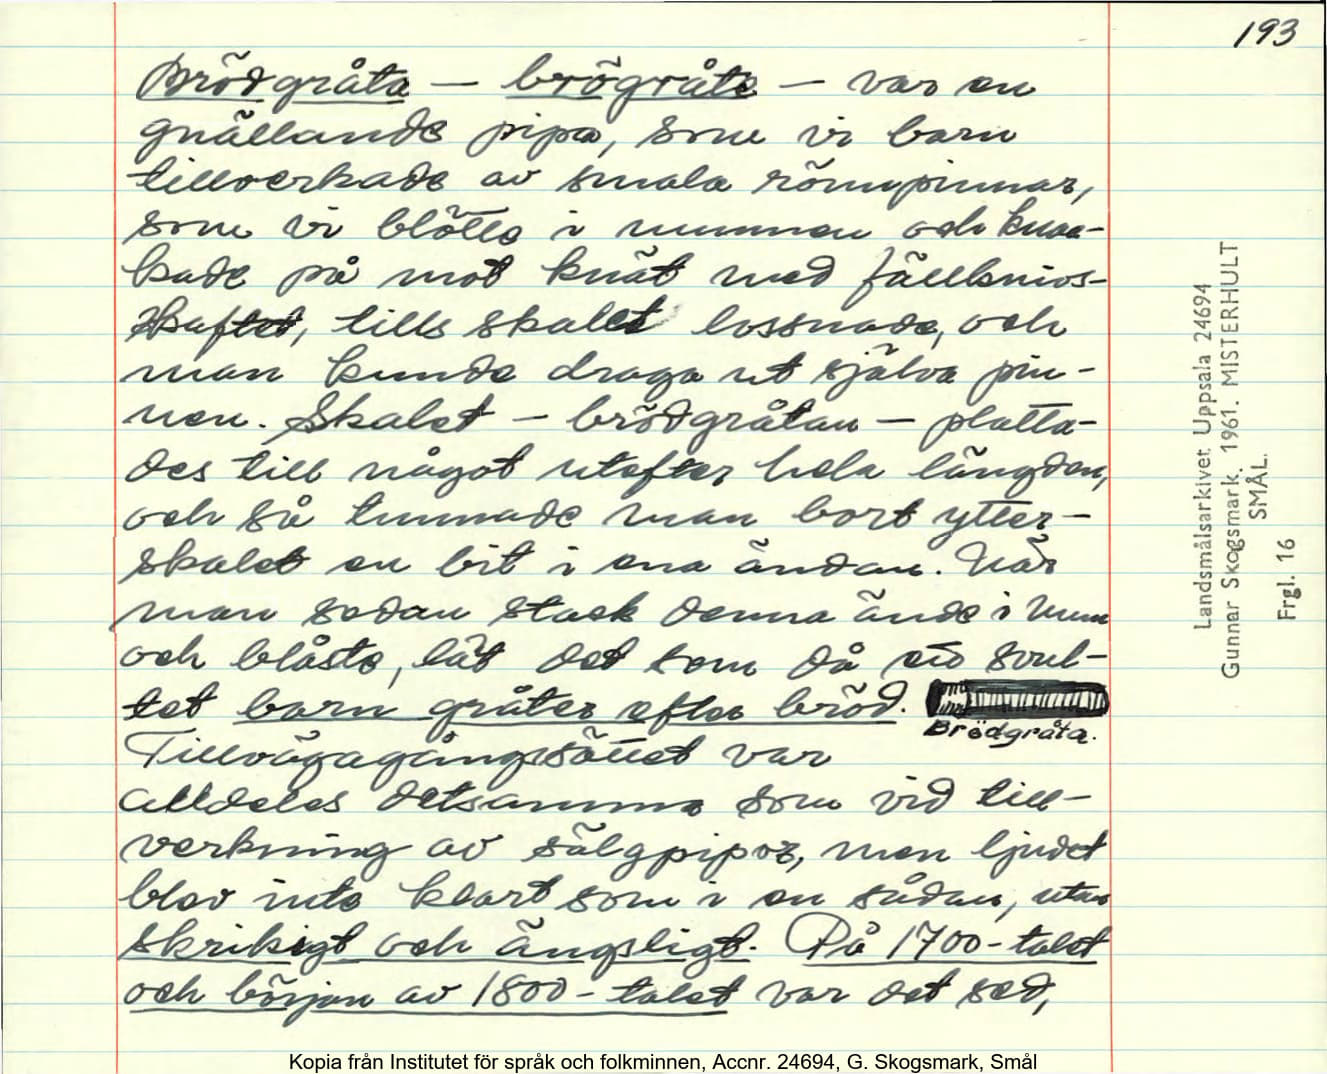 193
Brödgråta — brögråte — var en
gnällande pipa, som vi barn
tillverkade av smala rönnpinnar,
som vi blötte i munnen och knac-
kade på mot knät med fällknivs-
skaftet, tills skalet lossnade, och
man kunde draga ut själva pin-
nen. Skalet — brödgråtan — platta-
des till något utefter hela längden,
och så tunnade man bort ytter-
skalet en bit i ena ändan. När
man sedan stack denna ände i mun
och blåste, lät det som då ett svul-
tet barn gråter efter bröd.
Brödgråta.
Tillvägagångssättet var
alldeles detsamma som vid till-
verkning av sälgpipor, men ljudet
blev inte klart som i en sådan, utan
skrikigt och ängsligt. På 1700-talet
och början av 1800-talet var det sed,
Landsmålsarkivet Uppsala 24694
Gunnar Skogsmark. 1961. MISTERHULT
SMÅL.
Frgl. 16
Kopia från Institutet för språk och folkminnen, Accnr. 24694, G. Skogsmark, Smål